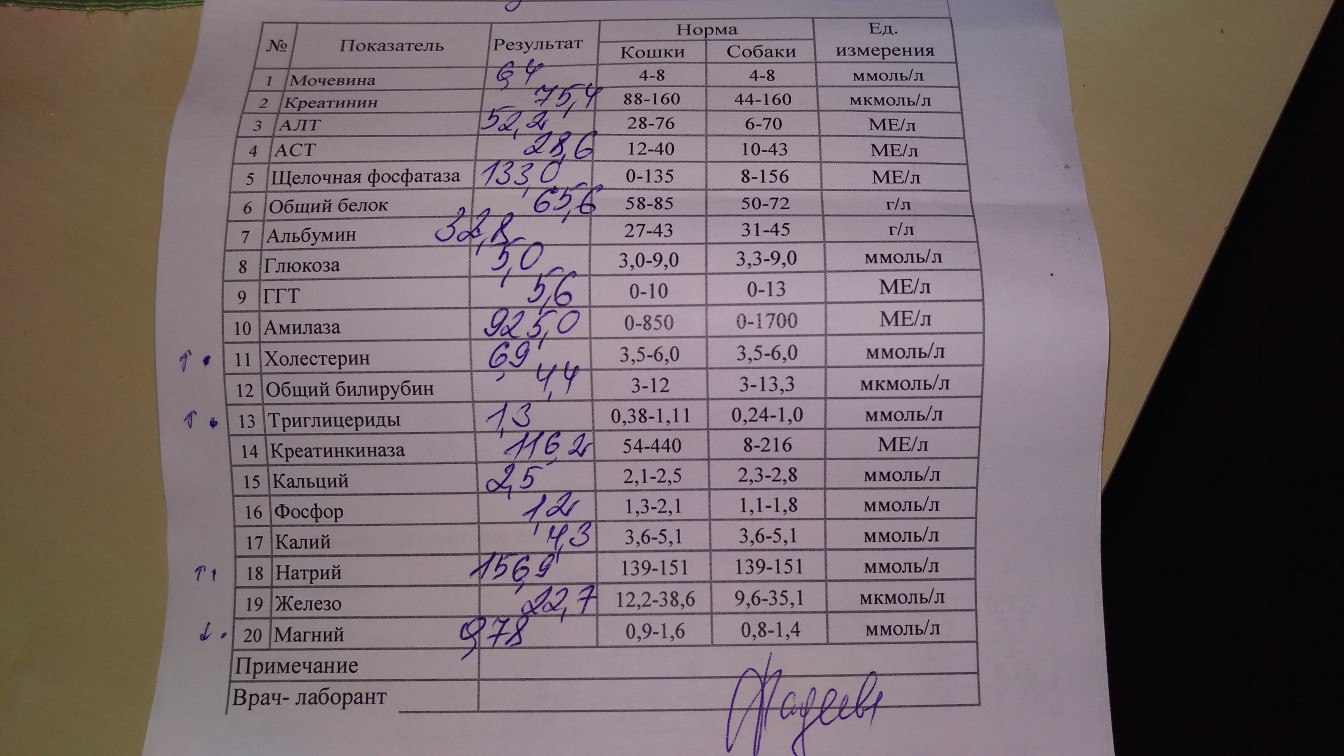 № Показатель Результат Норма Ед. измерения
Кошки Собаки
1 Мочевина 6,4 4-8 4-8 ммоль/л
2 Креатинин 75,4 88-160 44-160 мкмоль/л
3 АЛТ 52,2 28-76 6-70 МЕ/л
4 АСТ 28,6 12-40 10-43 МЕ/л
5 Щелочная фосфатаза 133,0 0-135 8-156 МЕ/л
6 Общий белок 65,6 58-85 50-72 г/л
7 Альбумин 32,8 27-43 31-45 г/л
8 Глюкоза 5,0 3,0-9,0 3,3-9,0 ммоль/л
9 ГГТ 5,6 0-10 0-13 МЕ/л
10 Амилаза 925,0 0-850 0-1700 МЕ/л
↑ 11 Холестерин 6,9 3,5-6,0 3,5-6,0 ммоль/л
12 Общий билирубин 4,4 3-12 3-13,3 мкмоль/л
↑ 13 Триглицериды 1,3 0,38-1,11 0,24-1,0 ммоль/л
14 Креатинкиназа 116,2 54-440 8-216 МЕ/л
15 Кальций 2,5 2,1-2,5 2,3-2,8 ммоль/л
16 Фосфор 1,2 1,3-2,1 1,1-1,8 ммоль/л
17 Калий 4,3 3,6-5,1 3,6-5,1 ммоль/л
↑ 18 Натрий 156,9 139-151 139-151 ммоль/л
19 Железо 22,7 12,2-38,6 9,6-35,1 мкмоль/л
↓ 20 Магний 0,78 0,9-1,6 0,8-1,4 ммоль/л
Примечание
Врач- лаборант